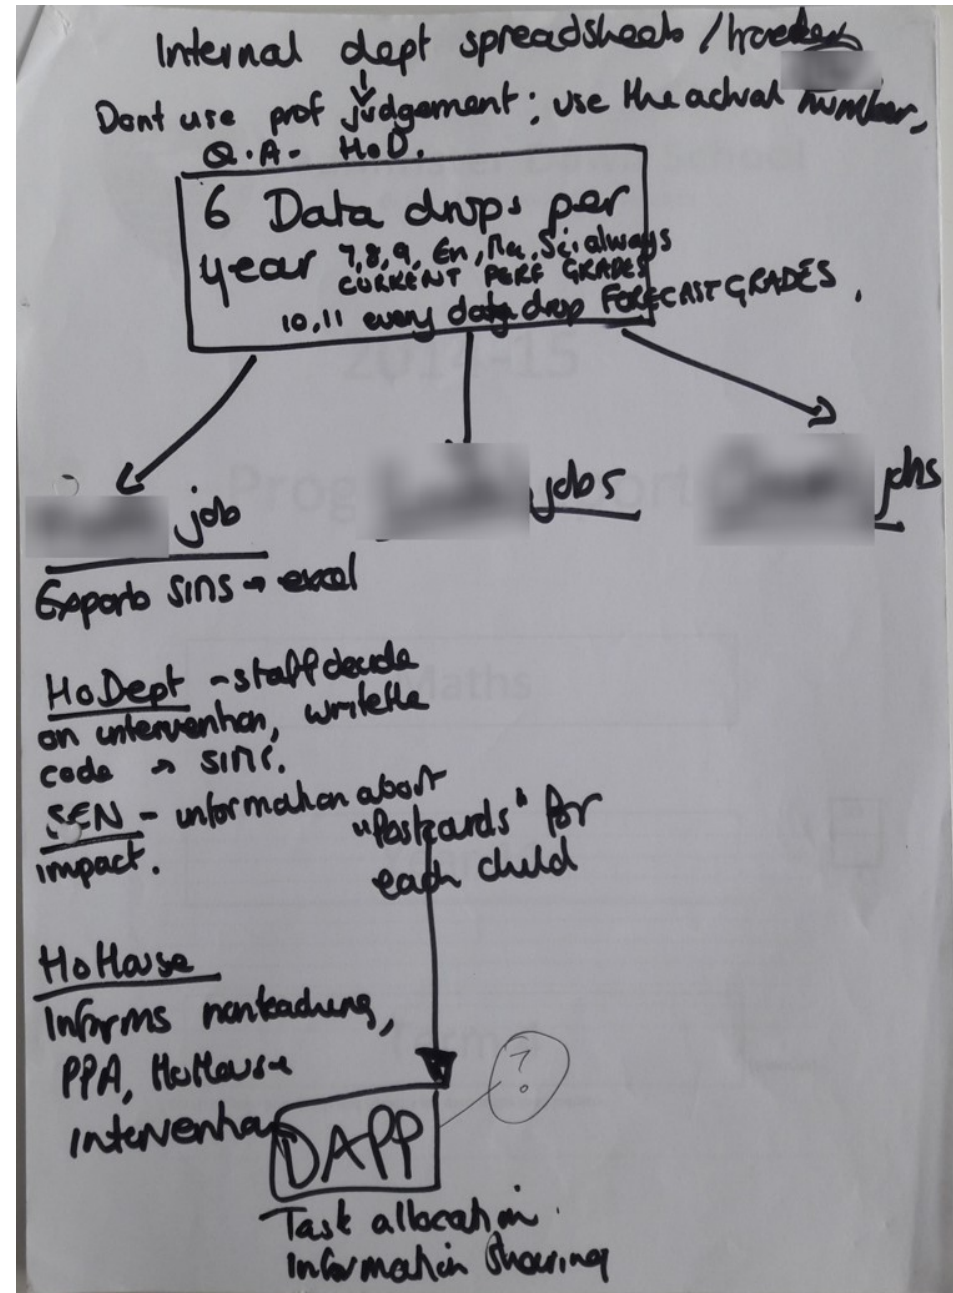 Internal dept spreadsheets / tracker
Dont use prof judgement; use the actual number,
Q.A. HoD.
6 Data drops per
year 7,8,9, En, Ma, Sci always
CURRENT PERF GRADES
10,11 every data drop FORECAST GRADES.
2014-15
job
jobs
jobs
Exports SIMS → excel
HoDept - staff decide
on intervention, write the
code → SIMS.
SEN - information about
impact.
"Postcards" for
each child
Maths
HoHouse
Informs nonteaching,
PPA, HoHouse
intervention
?
DAPP
Task allocation
Information Sharing